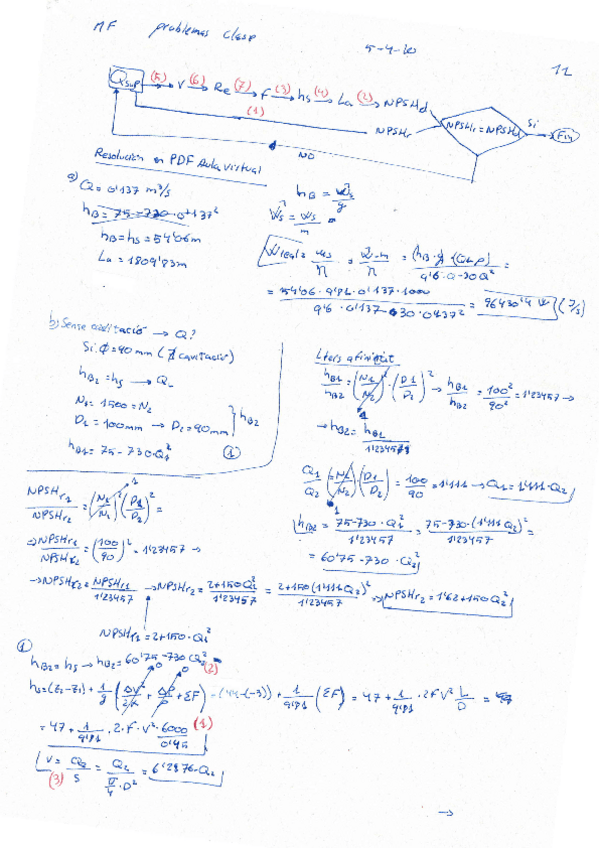 MF problemas clase
5-4-20
12
Qsup (5) → V (6) → Re (7) → f (3) → hs (4) → La (2) → NPSHd
(1)
NPSHr
NPSHr = NPSHd
Si
Fin
NO
Resolución en PDF Aula virtual
a) Q = 0'137 m³/s
hB = 75 - 730 · 0'137²
hB = hs = 54'06m
La = 1809'83m
Wreal =
= 54'06 · 9'81 · 0'137 · 1000
= 96430'4 W (J/s)
b) Sense cavitació → Q?
Si φ = 90 mm (∄ cavitación)
hB2 = hs →
N1 = 1500 = N2
D1 = 100mm → D2 = 90mm } hB2
hB1 = 75 - 730 · Q1² (1)
hB1/hB2 = (N1/N2)² · (D1/D2)² → hB1/hB2 = 100²/90² = 1'23457 →
→ hB2 = hB1/1'23457
Q1/Q2 = (N1/N2) · (D1/D2) = 100/90 = 1'111 → Q1 = 1'111 · Q2
hB2 = 75-730 · Q1²/1'23457 = 75-730 · (1'111 Q2)²/1'23457 =
= 60'75 - 730 · Q2²
NPSHr1/NPSHr2 = (N1/N2)² (D1/D2)² =
→ NPSHr1/NPSHr2 = (100/90)² = 1'23457 →
→ NPSHr2 = NPSHr1/1'23457 → NPSHr2 = 2+150Q1²/1'23457 = 2+150(1'111Q2)²/1'23457 → NPSHr2 = 1'62+150Q2²
NPSHr1 = 2+150 · Q1²
(1)
hB2 = hs → hB2 = 60'75 - 730 Q2² (2)
hs = (z2-z1) + 1/g (ΔV²/2α + ΔP/ρ + ΣF) = (44-(-3)) + 1/9'81 (ΣF) = 47 + 1/9'81 · 2fV² L/D =
= 47 + 1/9'81 · 2 · f · V² · 6000/0'45 (1)
V = Q2/S = Q2/(π/4 · D²) = 6'2876 · Q2
(3)
→